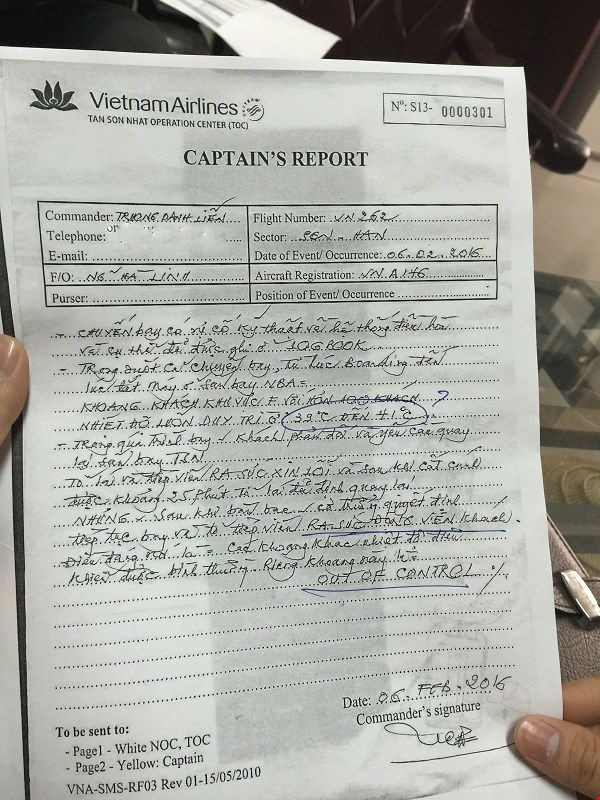 Vietnam Airlines
TAN SON NHAT OPERATION CENTER (TOC)
Nº: S13- 0000301
CAPTAIN'S REPORT
Commander: TRƯƠNG DANH LIỄN
Flight Number: VN 262
Telephone:
Sector: SGN - HAN
E-mail:
Date of Event/ Occurrence: 06.02.2016
F/O: NG HÀ LINH
Aircraft Registration: VN A146
Purser:
Position of Event/ Occurrence
- CHUYẾN bay có sự cố kỹ thuật về hệ thống điều hòa
và cụ thể đã được ghi ở LOGBOOK
- Trong suốt cả chuyến bay, từ lúc Boarding đến
lúc tắt máy ở sân bay NBA:
KHOANG KHÁCH KHU VỰC F VỚI HƠN 100 KHÁCH
NHIỆT ĐỘ LUÔN DUY TRÌ Ở 39°C ĐẾN 41°C ?
- Trong quá trình bay khách phản đối và yêu cầu quay
lại sân bay TSN
Tổ lái và tiếp viên RA SỨC XIN LỖI và sau khi cất cánh
được khoảng 25 phút tổ lái đã định quay lại
NHƯNG sau khi bàn bạc cơ trưởng quyết định
tiếp tục bay và tổ tiếp viên RA SỨC ĐỘNG VIÊN khách.
Điều đáng nói là: Các khoang khác nhiệt độ điều
khiển được bình thường. Riêng khoang này là
OUT OF CONTROL
Date: 06. FEB. 2016
Commander's signature
To be sent to:
- Page1 - White NOC, TOC
- Page2 - Yellow: Captain
VNA-SMS-RF03 Rev 01-15/05/2010